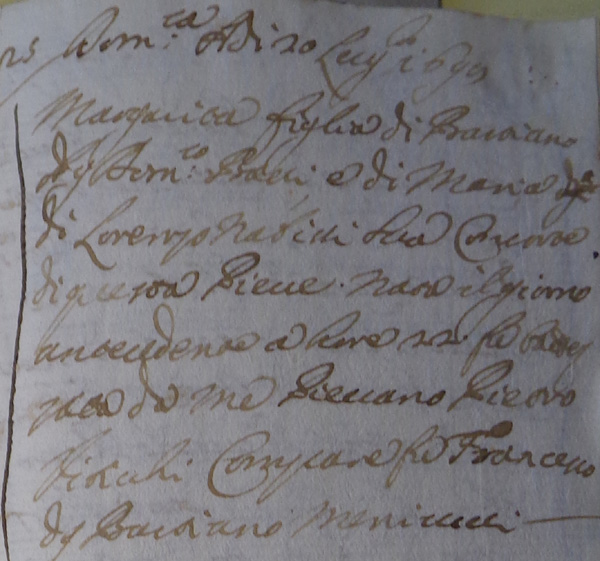 25 Dom:ca Adi 20 Lug.o 1692
Margarita figlia di Bastiano
di Dom:co Bacci e di Maria
di Lorenzo sua Consorte
di questa Pieve. Nata il giorno
antecedente a hore 22 fù battez
zata da me Pievano Pietro
Compare fù Francesco
di Bastiano Menicucci